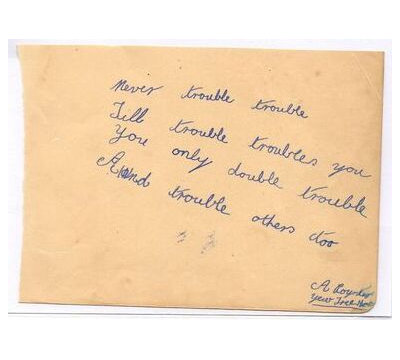 Never trouble trouble
Till trouble troubles you
You only double trouble
And trouble others too
A
Yew Tree